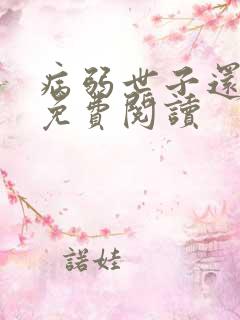 病弱世子還
免費閱讀
諾娃